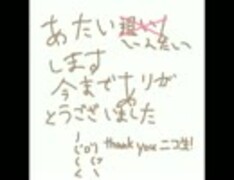 あたい
いんたい
します
今までありが
とうございました
thank you ニコ生!